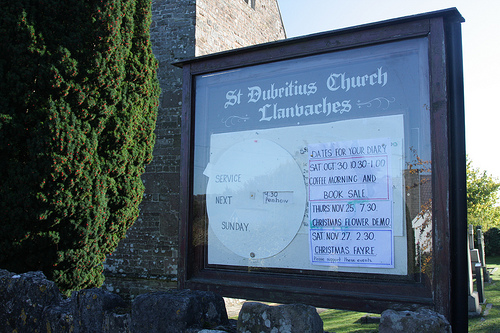 St Dubritius Church
Llanvaches
SERVICE
NEXT
9.30
SUNDAY
DATES FOR YOUR DIARY
SAT OCT 30 10.30-1.00
COFFEE MORNING AND
BOOK SALE
THURS NOV 25. 7.30
CHRISTMAS FLOWER DEMO
SAT NOV 27. 2.30
CHRISTMAS FAYRE
Please support these events